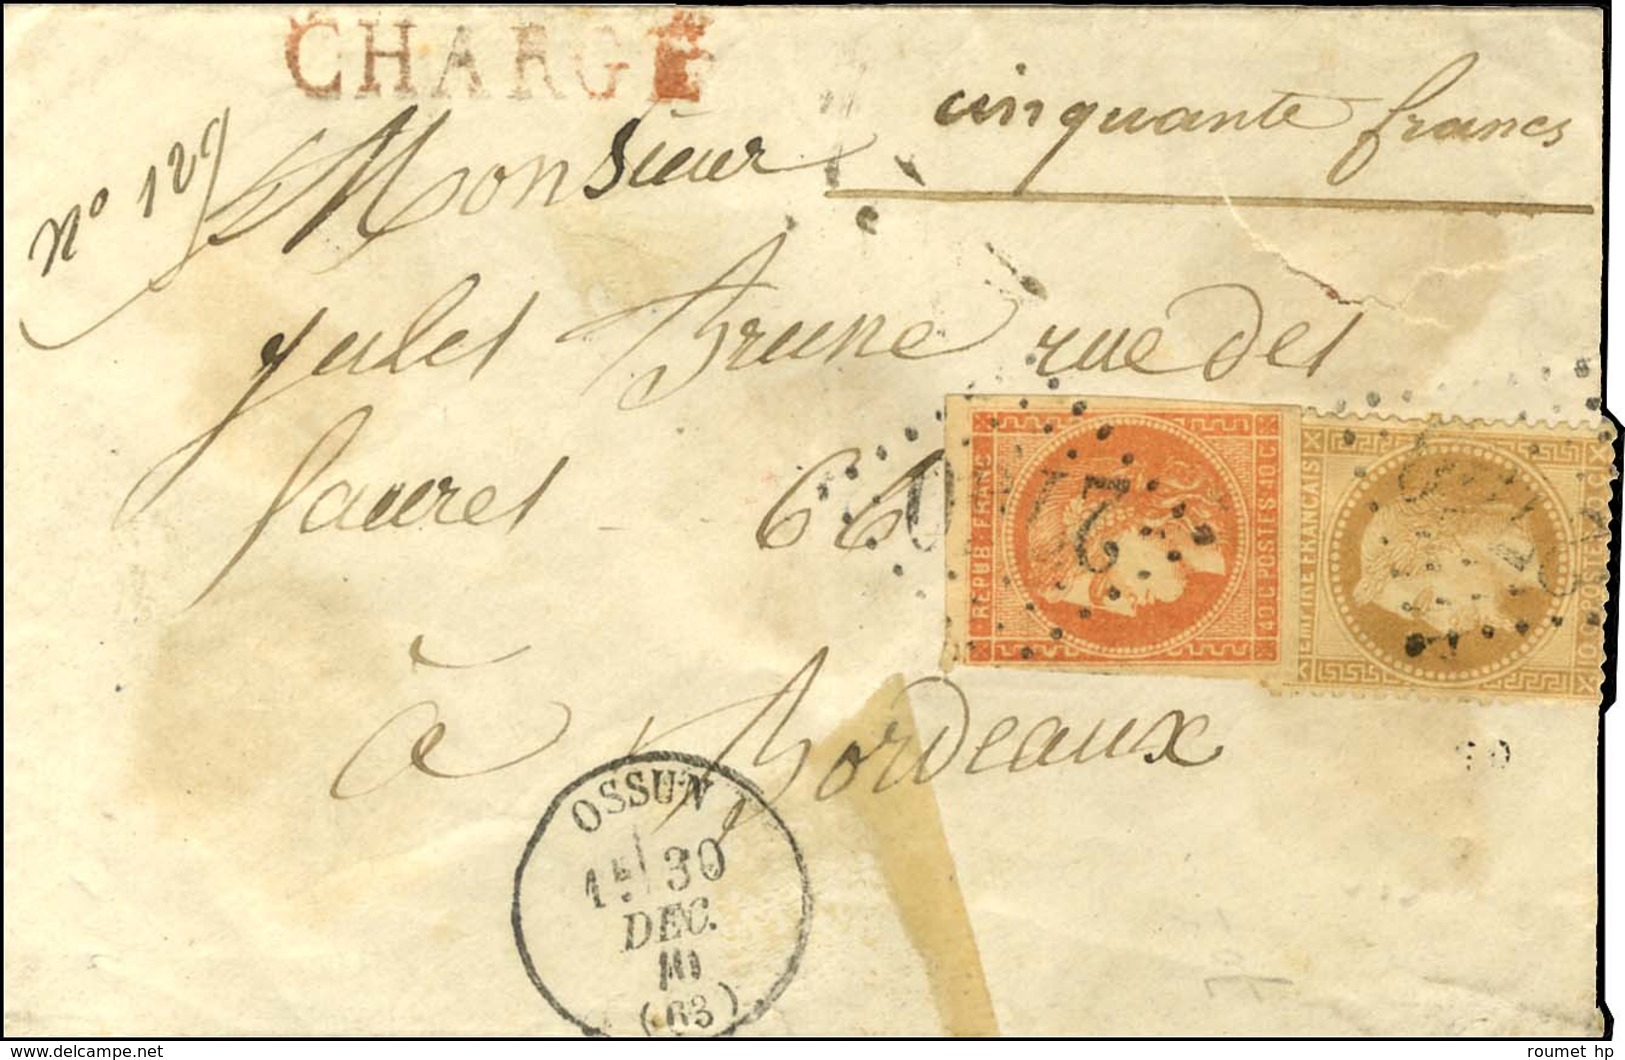 CHARGÉ
cinquante francs
No 129
Monsieur
Jules Brune rue des
faures 66
à Bordeaux
REPUB. FRANC.
40 C. POSTES 40 C.
EMPIRE FRANÇAIS
10 C. POSTES 10 C.
OSSUN
1E 30
DEC.
(63)
www.delcampe.net
roumet hp